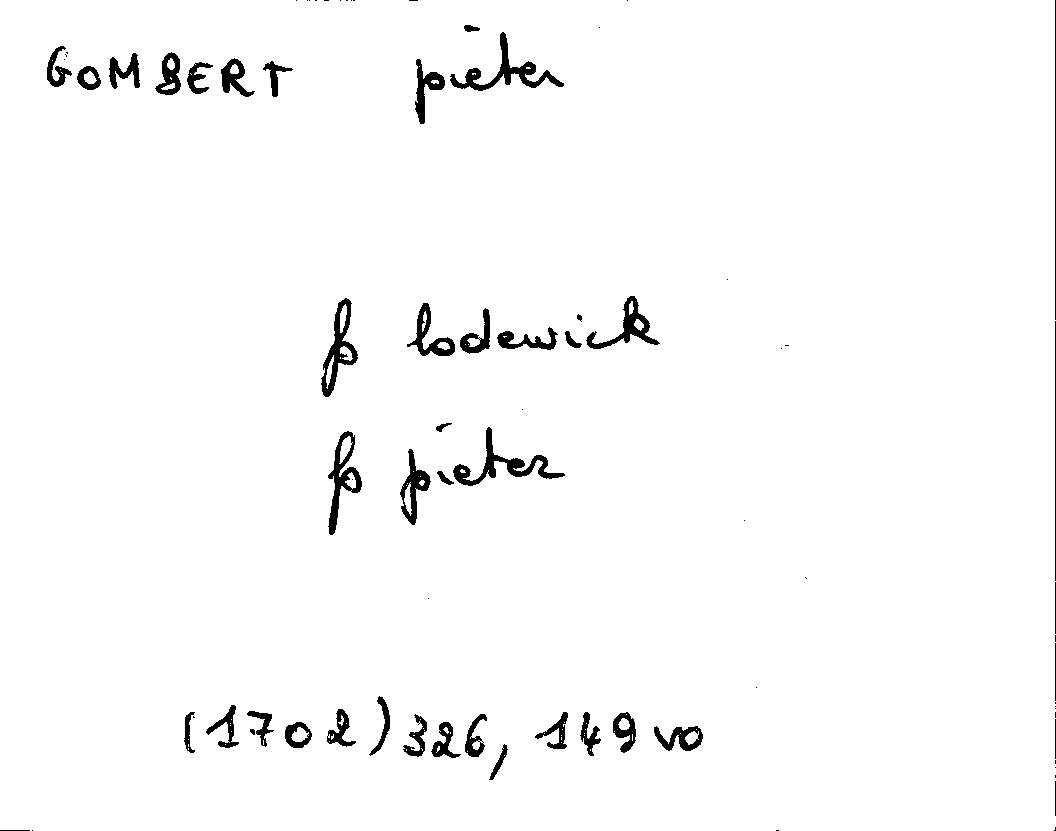 GOMBERT pieter
fs lodewick
fs pieter
(1702) 326, 149 vo